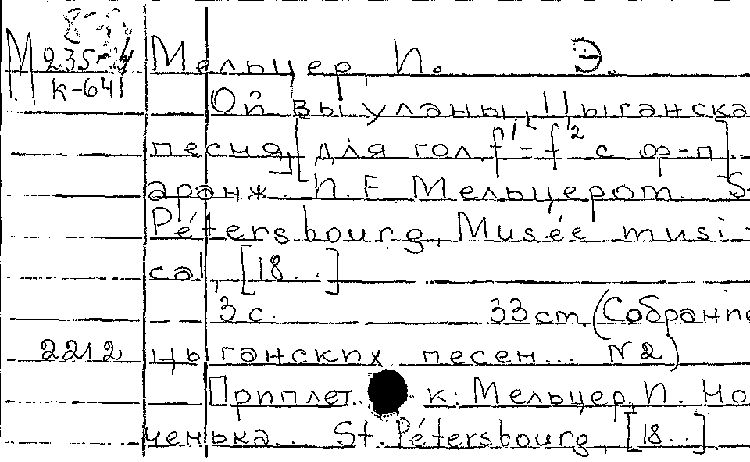 М 235-
к-641
Мельцер, И. Э.
Ой вы уланы, Цыганска
песня, [для гол. f¹-f² с ф-п]
аранж. И. Е. Мельцером. S
Pétersbourg, Musée musi-
cal, [18..]
3 с. 33 ст. (Собрание
2212 цыганских песен... N2)
Приплет. к: Мельцер, И. Но
ченька.. St. Pétersbourg, [18..]